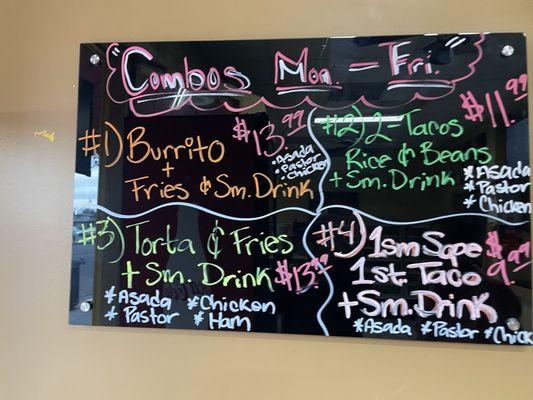 "Combos Mon. - Fri. "
#1) Burrito $13.99
+
Fries & Sm. Drink
* Asada
* Pastor
* Chicken
#2) 2-Tacos $11.99
Rice & Beans
+ Sm. Drink
* Asada
* Pastor
* Chicken
#3) Torta & Fries
+ Sm. Drink $13.99
* Asada * Chicken
* Pastor * Ham
#4) 1sm Sope $9.99
1st. Taco
+ Sm. Drink
* Asada * Pastor * Chick